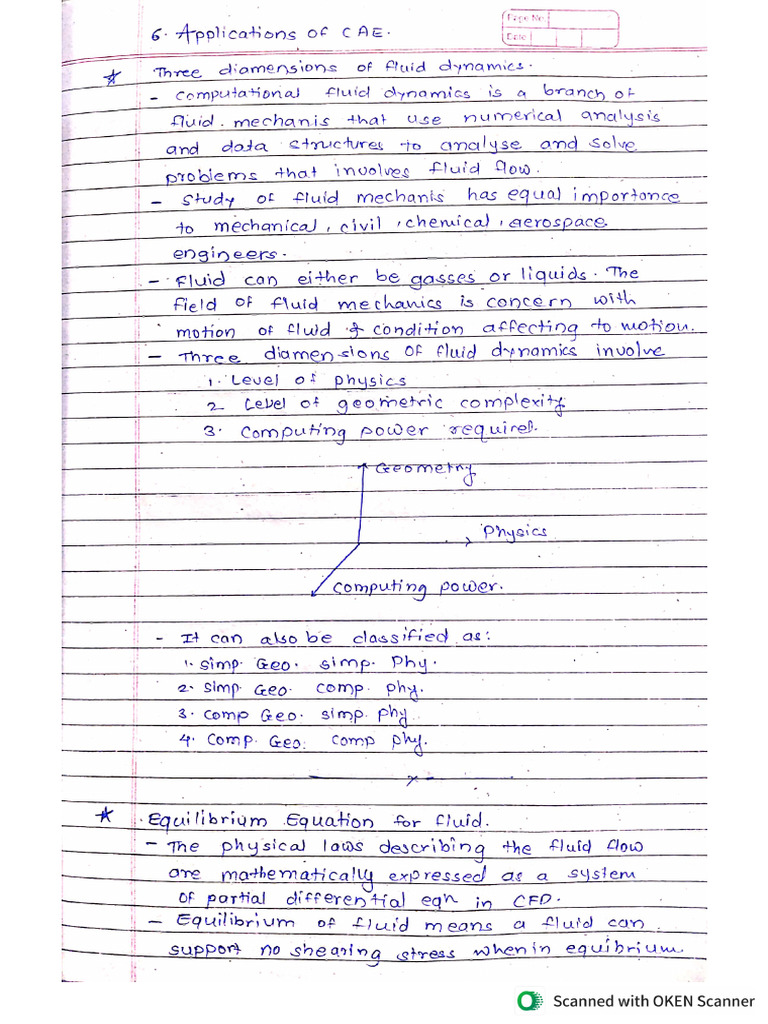 6. Applications of CAE.
Page No.
Date
Three diamensions of fluid dynamics.
- computational fluid dynamics is a branch of
fluid. mechanis that use numerical analysis
and data structures to analyse and solve
problems that involves fluid flow.
- study of fluid mechanis has equal importance
to mechanical, civil, chemical, aerospace
engineers.
- Fluid can either be gasses or liquids. The
field of fluid mechanics is concern with
motion of fluid & condition affecting to motion.
- Three diamensions of fluid dynamics involve
1. Level of physics
2 Level of geometric complexity
3. computing power required.
Geometry
Physics
computing power.
- It can also be classified as:
1. simp. Geo. simp. Phy.
2. simp. Geo. comp. phy.
3. comp Geo. simp. phy
4. comp. Geo. comp phy.
Equilibrium Equation for fluid.
- The physical laws describing the fluid flow
are mathematically expressed as a system
of partial differential eqn in CFD.
- Equilibrium of fluid means a fluid can
support no shearing stress when in equibrium.
Scanned with OKEN Scanner